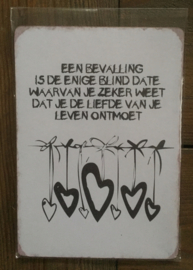 EEN BEVALLING
IS DE ENIGE BLIND DATE
WAARVAN JE ZEKER WEET
DAT JE DE LIEFDE VAN JE
LEVEN ONTMOET